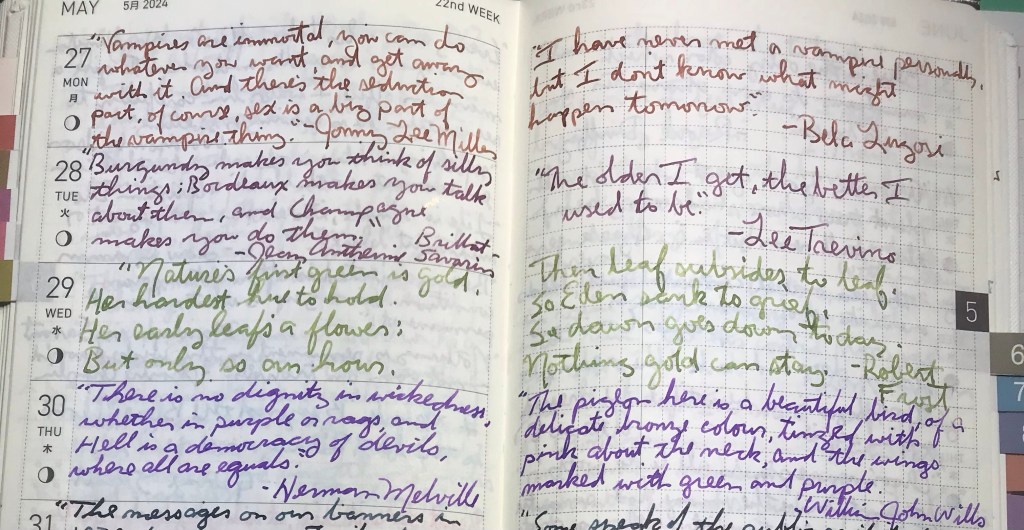 MAY 5月 2024 22nd WEEK
27 MON 月
"Vampires are immortal, you can do
whatever you want, and get away
with it. And there's the seduction
part, of course, sex is a big part of
the vampire thing." -Jonny Lee Miller
28 TUE 火
"Burgundy makes you think of silly
things; Bordeaux makes you talk
about them, and Champagne
makes you do them." Brillat-
-Jean Anthelme Savarin
29 WED 水
"Nature's first green is gold,
Her hardest hue to hold.
Her early leaf's a flower;
But only so an hour.
30 THU 木
"There is no dignity in wickedness,
whether in purple or rags, and
Hell is a democracy of devils,
where all are equals."
-Herman Melville
31
"The messages on our banners in
"I have never met a vampire personally,
but I don't know what might
happen tomorrow."
-Bela Lugosi
"The older I get, the better I
used to be."
-Lee Trevino
Then leaf subsides to leaf.
So Eden sank to grief,
So dawn goes down to day.
Nothing gold can stay. -Robert
Frost
"The pigeon here is a beautiful bird, of a
delicate bronze colour, tinged with
pink about the neck, and the wings
marked with green and purple.
-William John Wills
"Some speak of the
5
6
7